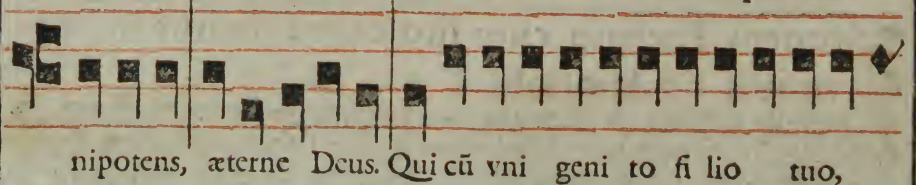 nipotens, æterne Deus. Qui cū vni geni to fi lio tuo,